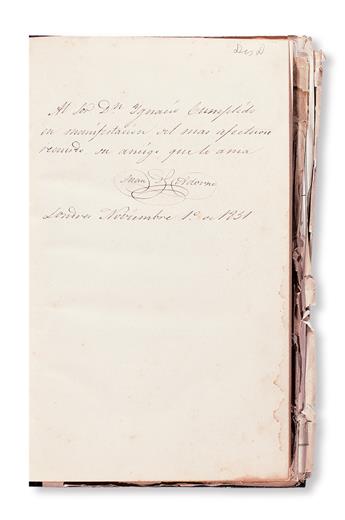 Des D
Al Sor Dn Ygnacio Cumplido
en manifestacion del mas afectuoso
recuerdo, su amigo que le ama
Juan N. Adorno
Londres Noviembre 1º de 1851